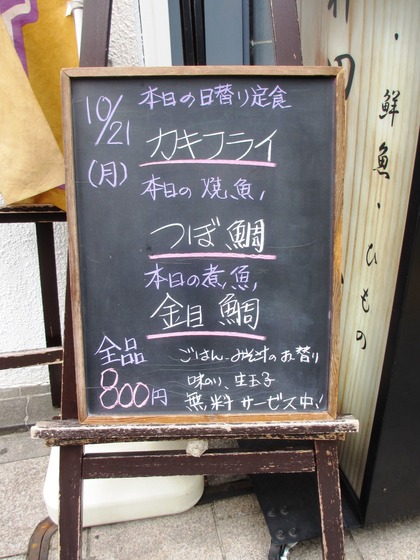 10/21
(月)
本日の日替り定食
カキフライ
本日の焼魚
つぼ鯛
本日の煮魚
金目鯛
全品
800円
ごはん、みそ汁のお替り
味のり、生玉子
無料サービス中!
・鮮魚・ひもの